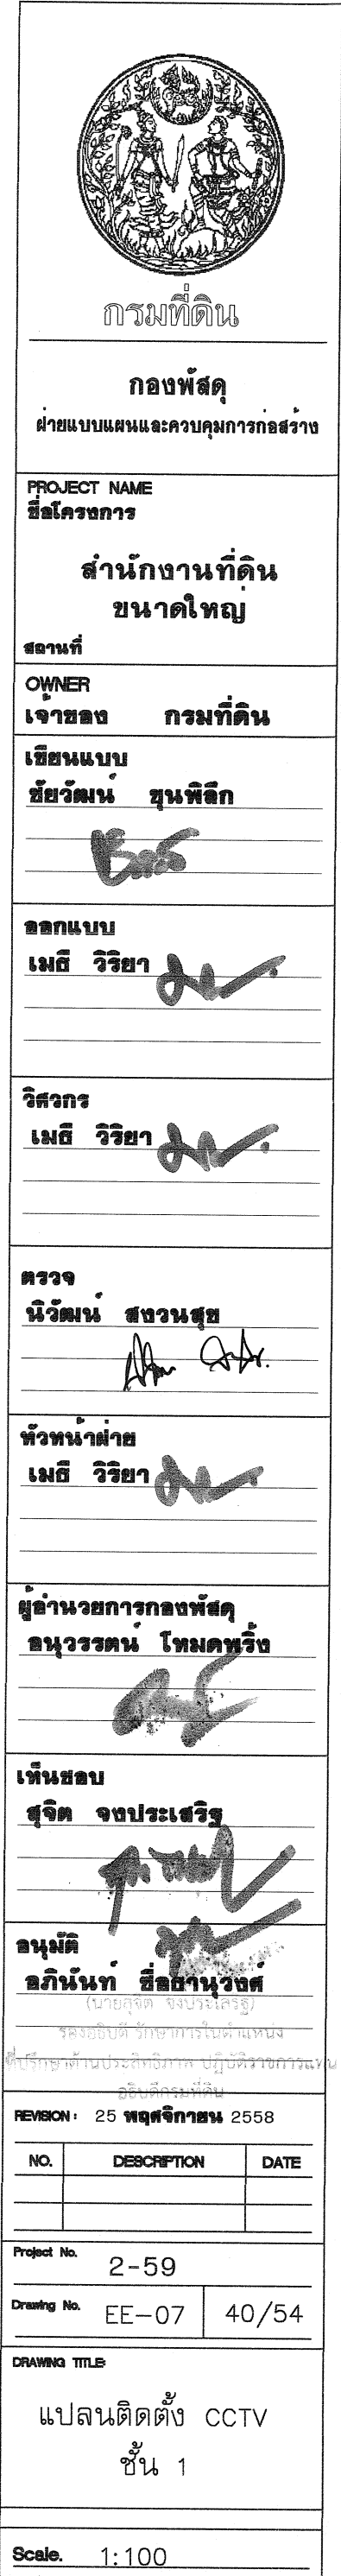 กรมที่ดิน
กองพัสดุ
ฝ่ายแบบแผนและควบคุมการก่อสร้าง
PROJECT NAME
ชื่อโครงการ
สำนักงานที่ดิน
ขนาดใหญ่
สถานที่
OWNER
เจ้าของ กรมที่ดิน
เขียนแบบ
ชัยวัฒน์ ขุนพิลึก
ออกแบบ
เมธี วิริยา
วิศวกร
เมธี วิริยา
ตรวจ
นิวัฒน์ สงวนสุข
หัวหน้าฝ่าย
เมธี วิริยา
ผู้อำนวยการกองพัสดุ
อนุวรรตน์ โหมดพริ้ง
เห็นชอบ
สุจิต จงประเสริฐ
อนุมัติ
อภินันท์ ซื่อธานุวงศ์
(นายสุจิต จงประเสริฐ)
รองอธิบดี รักษาการในตำแหน่ง
ที่ปรึกษาด้านประสิทธิภาพ ปฏิบัติราชการแทน
อธิบดีกรมที่ดิน
REVISION : 25 พฤศจิกายน 2558
NO. DESCRIPTION DATE
Project No. 2-59
Drawing No. EE-07 40/54
DRAWING TITLE:
แปลนติดตั้ง CCTV
ชั้น 1
Scale. 1:100